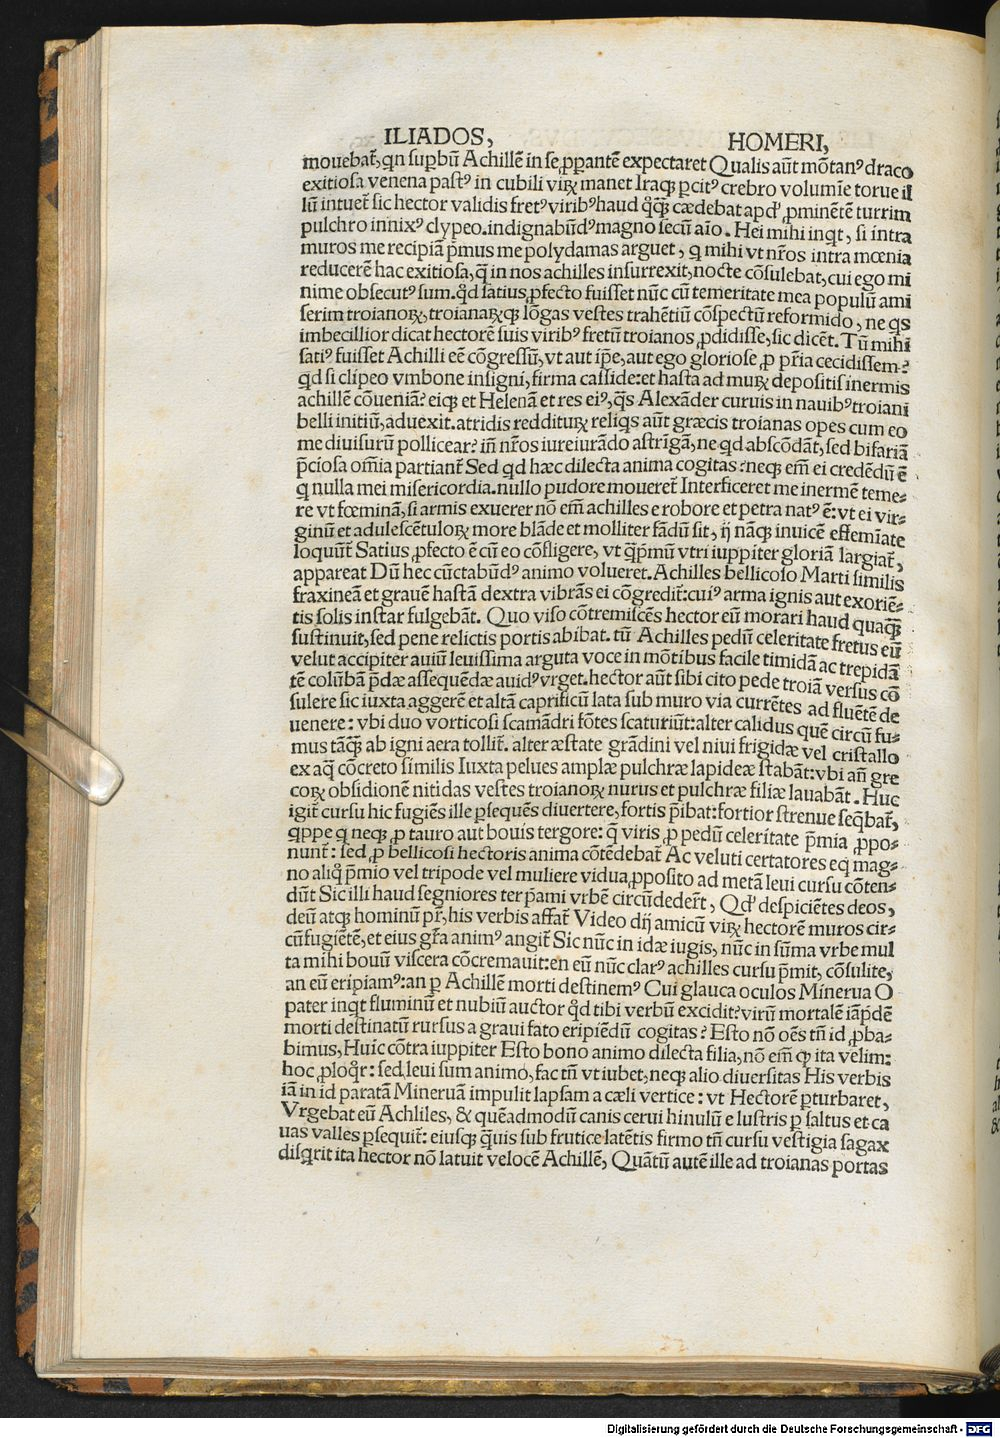 ILIADOS, HOMERI,
mouebat᷑, qn suꝑbū Achillē in se ꝓpantē expectaret Qualis aūt mōtanꝰ draco
exitiosa venena pastꝰ in cubili viꝝ manet Iraqꝫ ꝑcitꝰ crebro volumīe torue il
lū intuet᷑ sic hector validis fretꝰ viribꝰ haud q̊q̄ꝫ cædebat apd' ꝓminētē turrim
pulchro innixꝰ clypeo. indignabūdꝰ magno secū aīo. Hei mihi inqt, si intra
muros me recipiā p̄mus me polydamas arguet, q mihi vt nr̄os intra mœnia
reducerē hac exitiosa, q̄ in nos achilles insurrexit, nocte cōsulebat, cui ego mi
nime obsecutꝰ sum. q̊d satius ꝓfecto fuisset nūc cū temeritate mea populū ami
serim troianoꝝ, troianaꝝqꝫ lōgas vestes trahētiū cōspectū reformido, ne qs
imbecillior dicat hectorē suis viribꝰ fretū troianos ꝓdidisse, sic dicēt. Tū mihi
satiꝰ fuisset Achilli eē cōgressū, vt aut ip̄e, aut ego gloriose ꝓ pr̄ia cecidissem?
q̊d si clipeo vmbone insigni, firma casside: et hasta ad muꝝ depositis inermis
achillē cōueniā? eiqꝫ et Helenā et res eiꝰ, q̄s Alexāder curuis in nauibꝰ troiani
belli initiū, aduexit. atridis reddituꝝ reliqs aūt græcis troianas opes cum eo
me diuisurū pollicear? in̄ nr̄os iureiurādo astrīgā, ne qd abscōdāt, sed bifariā
p̄ciosa om̄ia partiant᷑ Sed qd hæc dilecta anima cogitas? neqꝫ em̄ ei credēdū ē
q nulla mei misericordia. nullo pudore moueret᷑ Interficeret me inermē teme⸗
re vt fœminā, si armis exuerer nō em̄ achilles e robore et petra natꝰ ē: vt ei vir⸗
ginū et adulescētuloꝝ more blāde et molliter fādū sit, ij nāqꝫ inuicē effemīate
loquūt᷑ Satius ꝓfecto ē cū eo cōfligere, vt q̄p̄mū vtri iuppiter gloriā largiat᷑,
appareat Dū hec cūctabūdꝰ animo volueret. Achilles bellicoso Marti similis
fraxineā et grauē hastā dextra vibrās ei cōgredit᷑: cuiꝰ arma ignis aut exoriē⸗
tis solis instar fulgebāt. Quo viso cōtremiscēs hector eū morari haud quaq̄ꝫ
sustinuit, sed pene relictis portis abibat. tū Achilles pedū celeritate fretus eū
velut accipiter auiū leuissima arguta voce in mōtibus facile timidā ac trepidā
tē colūbā p̄dæ assequēdæ auidꝰ vrget. hector aūt sibi cito pede troiā versus cō
sulere sic iuxta aggerē et altā caprificū lata sub muro via currētes ad fluētē de
uenere: vbi duo vorticosi scamādri fōtes scaturiūt: alter calidus quē circū fu⸗
mus tāq̄ꝫ ab igni aera tollit᷑. alter æstate grādini vel niui frigidæ vel cristallo
ex aq̄ cōcreto similis Iuxta pelues amplæ pulchræ lapideæ stabāt: vbi an̄ gre
coꝝ obsidionē nitidas vestes troianoꝝ nurus et pulchræ filiæ lauabāt. Huc
igit᷑ cursu hic fugiēs ille ꝑsequēs diuertere, fortis p̄ibat: fortior strenue seq̄bat᷑,
qppe q neqꝫ ꝓ tauro aut bouis tergore: q̄ viris ꝓ pedū celeritate p̄mia ꝓpo⸗
nunt᷑: sed ꝓ bellicosi hectoris anima cōtēdebat᷑ Ac veluti certatores eq mag⸗
no aliq̊ p̄mio vel tripode vel muliere vidua ꝓposito ad metā leui cursu cōten⸗
dūt Sic illi haud segniores ter p̄ami vrbē circūdeder̄t, Qd' despiciētes deos,
deū atqꝫ hominū pr̄, his verbis affat᷑ Video dij amicū viꝝ hectorē muros cir⸗
cūfugiētē, et eius gr̄a animꝰ angit᷑ Sic nūc in idæ iugis, nūc in sūma vrbe mul
ta mihi bouū viscera cōcremauit: en eū nūc clarꝰ achilles cursu p̄mit, cōsulite,
an eū eripiamꝰ: an ꝑ Achillē morti destinemꝰ Cui glauca oculos Minerua O
pater inqt fluminū et nubiū auctor q̊d tibi verbū excidit? virū mortalē iāp̄dē
morti destinatū rursus a graui fato eripiēdū cogitas? Esto nō oēs tn̄ id ꝓba⸗
bimus, Huic cōtra iuppiter Esto bono animo dilecta filia, nō em̄ ꝙ ita velim:
hoc ꝓloq̊r: sed leui sum animo, fac tn̄ vt iubet, neqꝫ alio diuersitas His verbis
iā in id paratā Mineruā impulit lapsam a cæli vertice: vt Hectorē ꝑturbaret,
Vrgebat eū Achliles, & quēadmodū canis cerui hinulū e lustris ꝑ saltus et ca
uas valles ꝑsequit᷑: eiusqꝫ q̄uis sub frutice latētis firmo tn̄ cursu vestigia sagax
disqrit ita hector nō latuit velocē Achillē, Quātū autē ille ad troianas portas
Digitalisierung gefördert durch die Deutsche Forschungsgemeinschaft - DFG